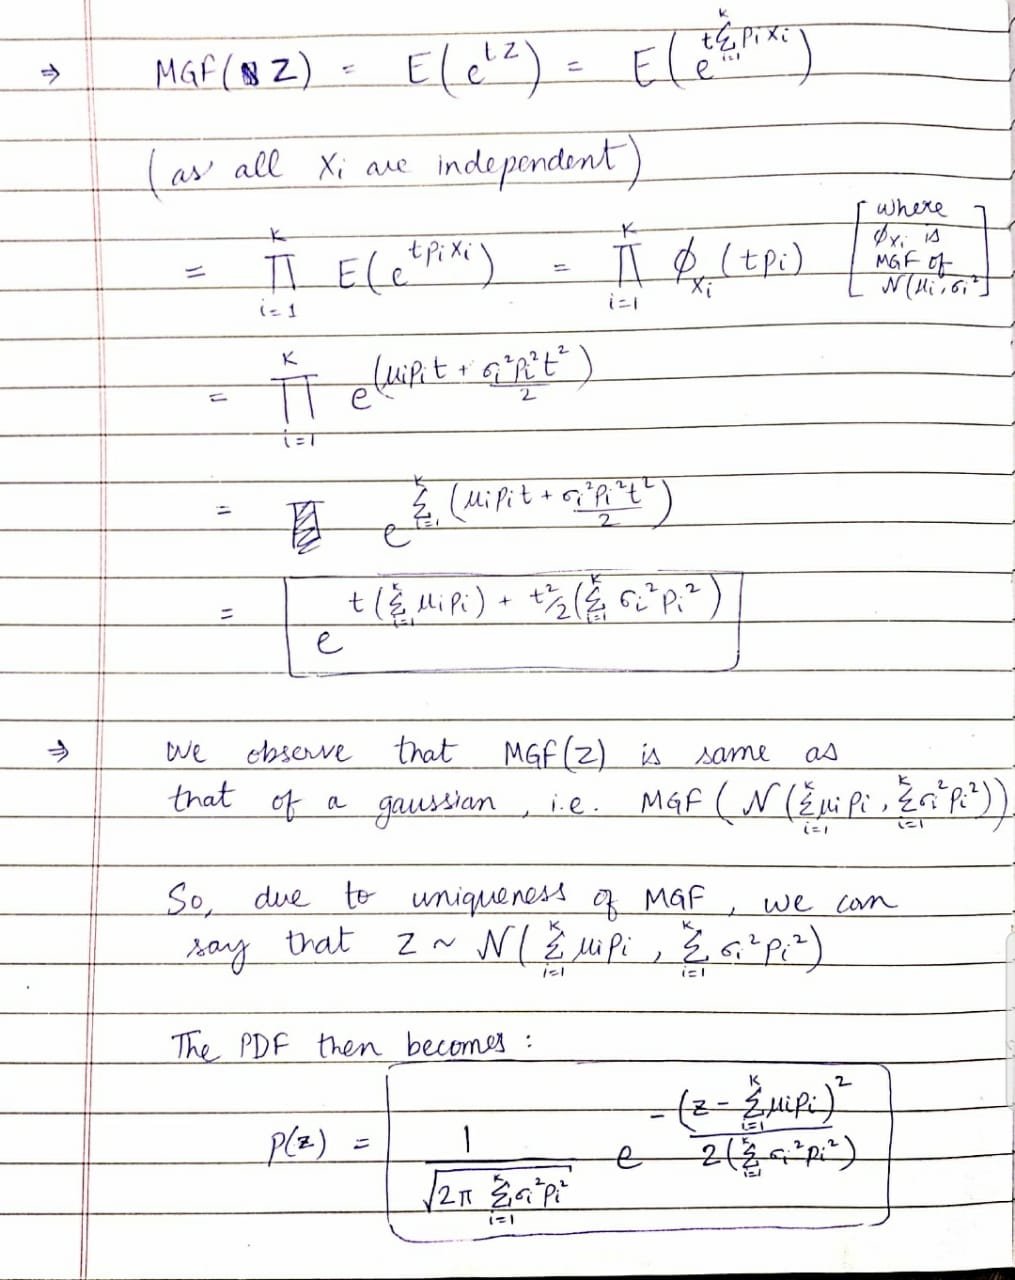 ⇒ MGF(Z) = E(e^{tZ}) = E(e^{t∑_{i=1}^{K} p_i x_i})
(as all X_i are independent)
= ∏_{i=1}^{K} E(e^{t p_i x_i}) = ∏_{i=1}^{K} ϕ_{X_i}(t p_i) [where ϕ_{X_i} is MGF of N(μ_i, σ_i²]
= ∏_{i=1}^{K} e^{(μ_i p_i t + σ_i² p_i² t²/2)}
= e^{∑_{i=1}^{K} (μ_i p_i t + σ_i² p_i² t²/2)}
= e^{t(∑_{i=1}^{K} μ_i p_i) + t²/2(∑_{i=1}^{K} σ_i² p_i²)}
⇒ We observe that MGF(Z) is same as
that of a gaussian, i.e. MGF(N(∑_{i=1}^{K} μ_i p_i, ∑_{i=1}^{K} σ_i² p_i²))
So, due to uniqueness of MGF, we can
say that Z ~ N(∑_{i=1}^{K} μ_i p_i, ∑_{i=1}^{K} σ_i² p_i²)
The PDF then becomes:
p(z) = 1/√(2π ∑_{i=1}^{K} σ_i² p_i²) e^{-(z - ∑_{i=1}^{K} μ_i p_i)²/2(∑_{i=1}^{K} σ_i² p_i²)}